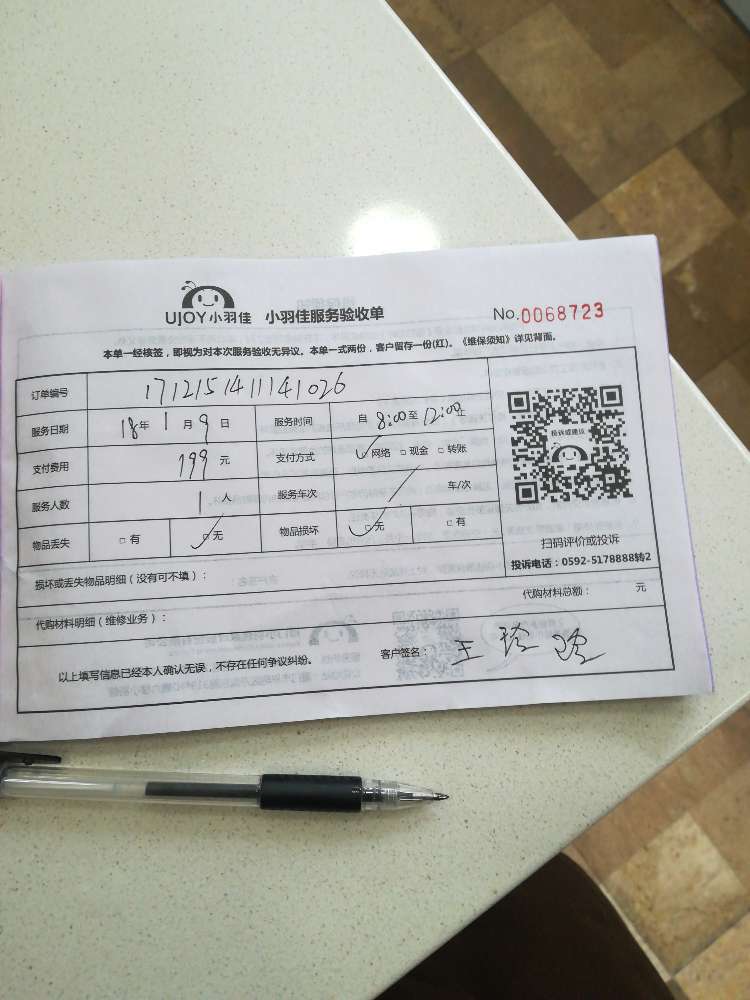 UJOY小羽佳 小羽佳服务验收单 No.0068723
本单一经核签，即视为对本次服务验收无异议。本单一式两份，客户留存一份(红)。《维保须知》详见背面。
订单编号 1712151411141026
服务日期 18年 1月 9日 服务时间 自 8:00至 12:00止
支付费用 199元 支付方式 ✓网络 □现金 □转账
服务人数 1人 服务车次 / 车/次
物品丢失 □有 ✓□无 物品损坏 ✓□无 □有
投诉或建议
扫码评价或投诉
投诉电话：0592-5178888转2
损坏或丢失物品明细（没有可不填）：
代购材料明细（维修业务）： 代购材料总额： 元
以上填写信息已经本人确认无误，不存在任何争议纠纷。 客户签名： 王玲玲